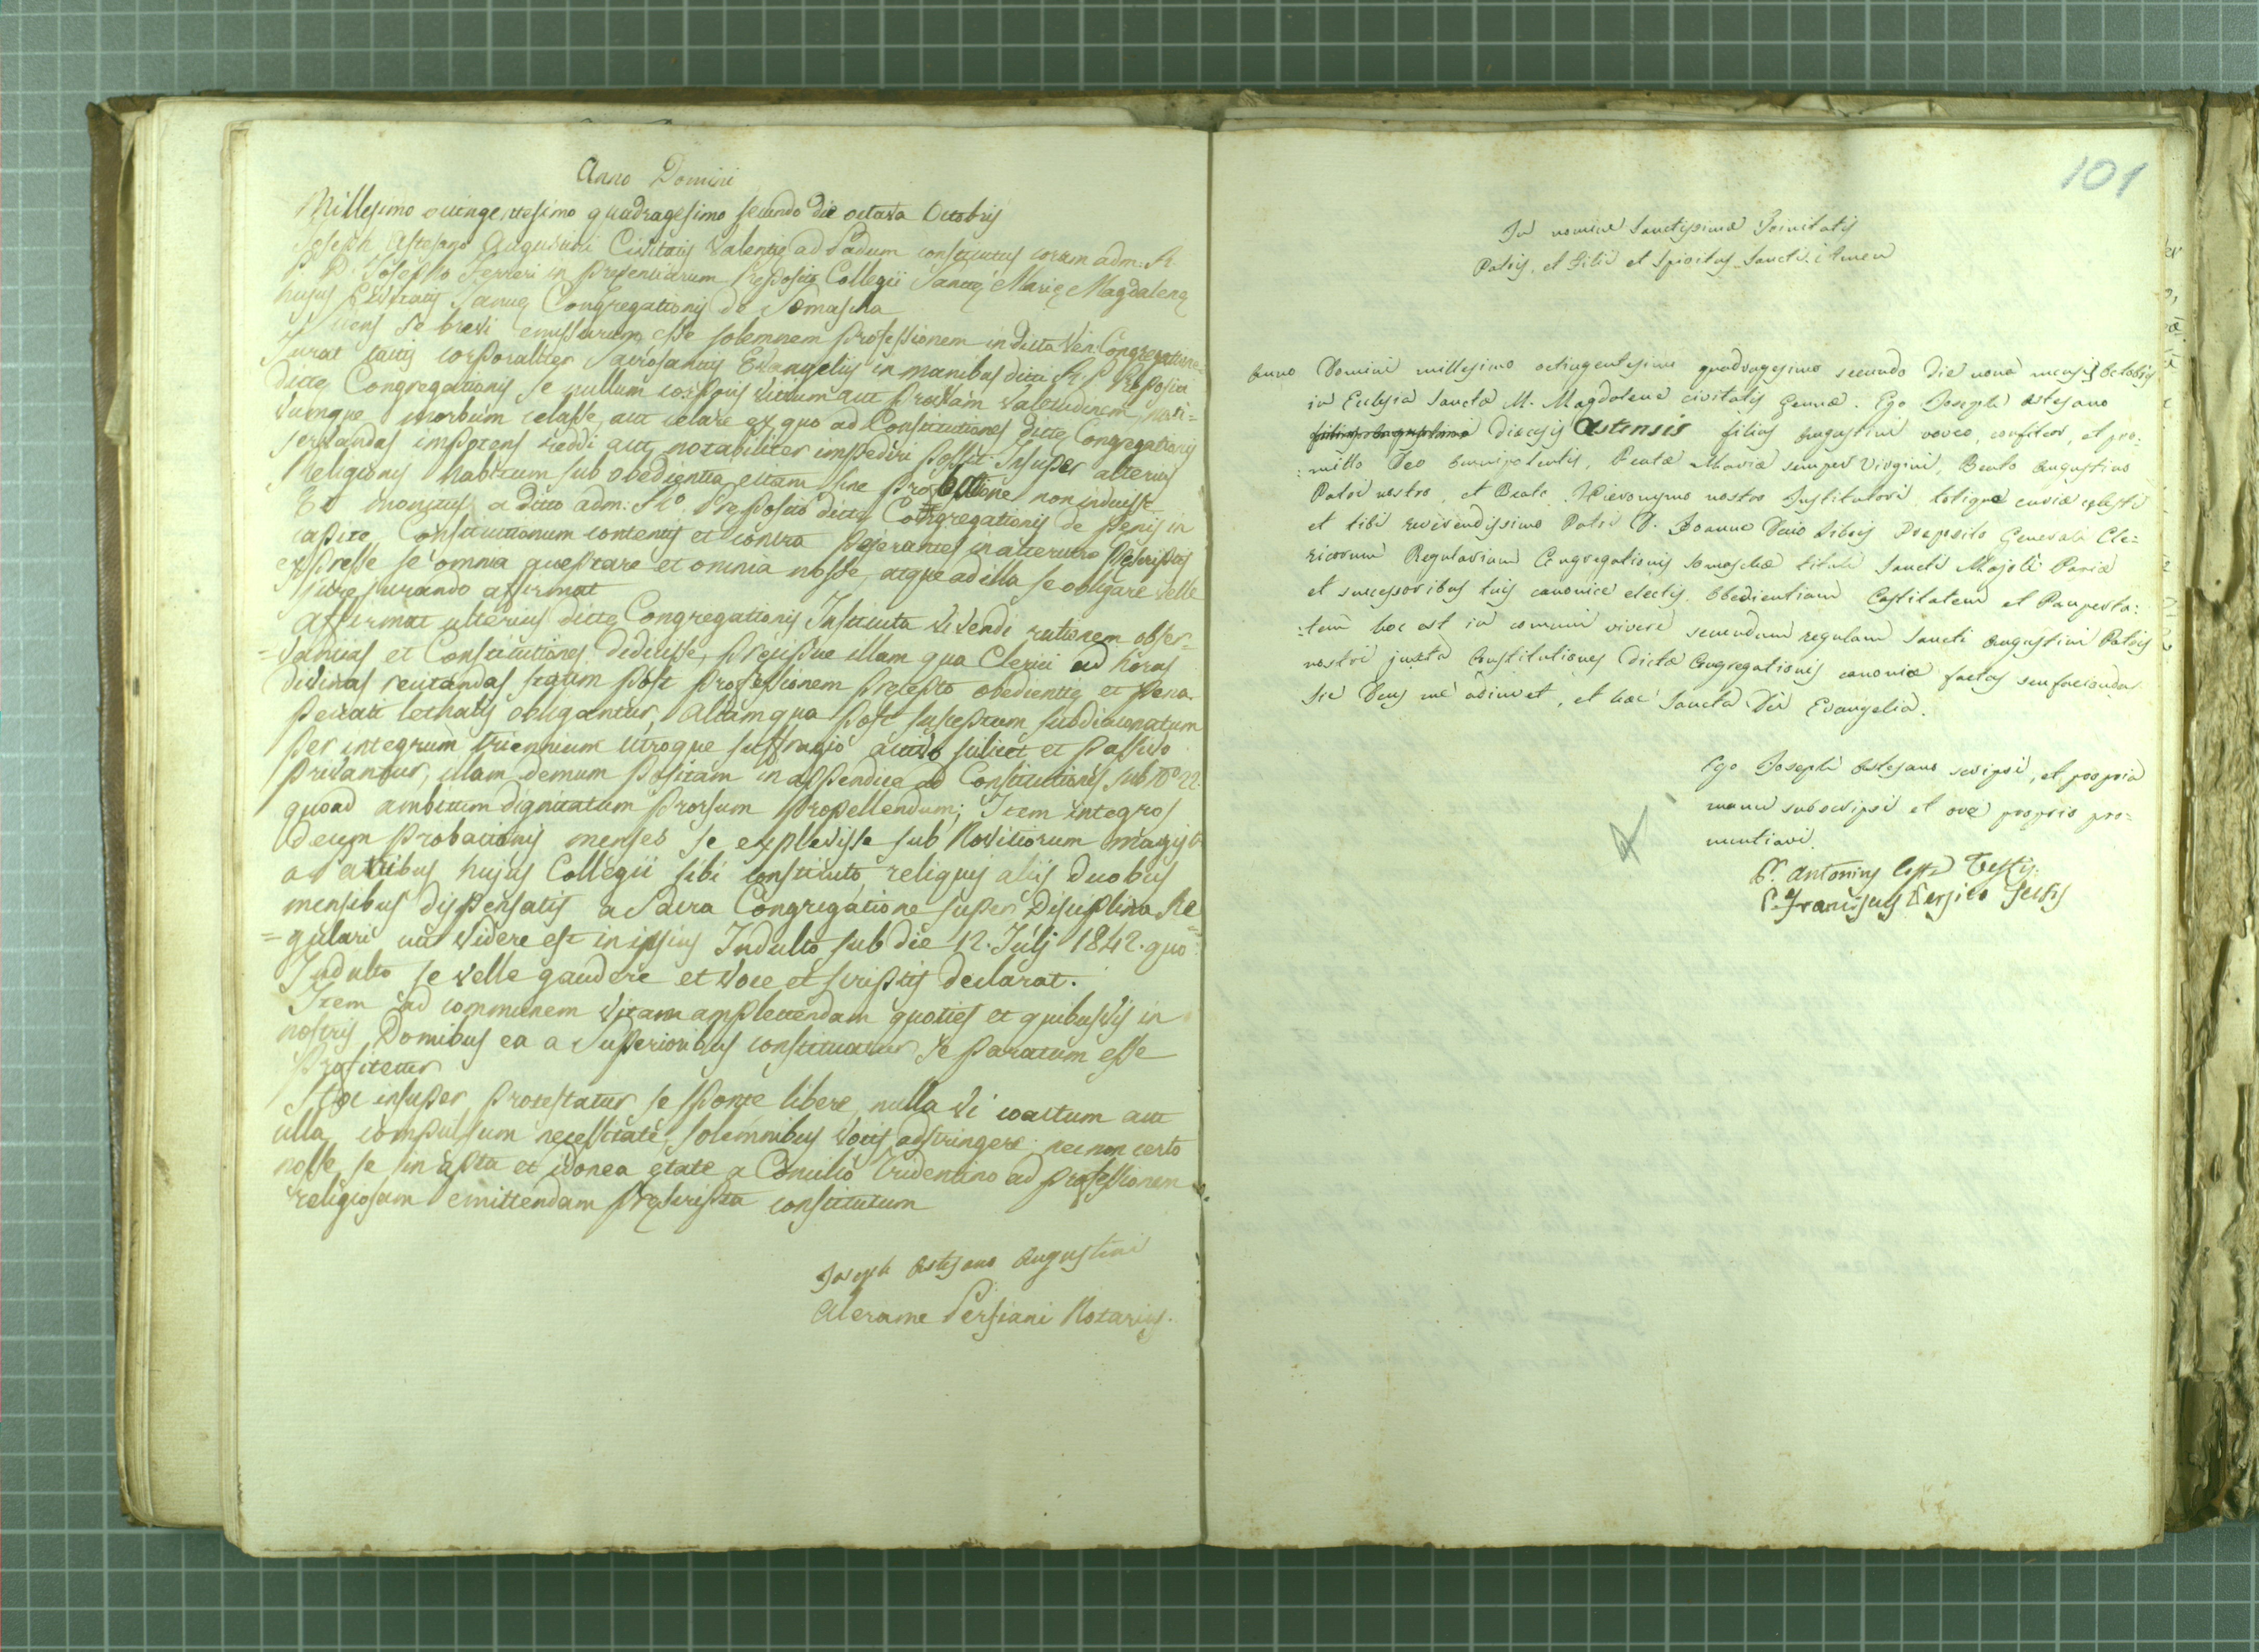 Anno Domini
Millesimo octingentesimo quadragesimo secundo die octava Octobris
Joseph Astesano Augustini Civitatis Valentię ad Padum constitutus coram adm. R.
P. D. Josepho Ferreri in presentiarum Preposito Collegii Sanctę Marię Magdalenę
hujus Civitatis Januę Congregationis de Somascha
Sciens se brevi emissurum esse solemnem professionem in dicta Ven. Congregatione
Jurat tactis corporaliter Sacrosanctis Evangeliis in manibus dicti R. P. Prepositi
dictę Congregationis se nullum corporis vitium aut pravam valetudinem, nosci-
vumque morbum celasse, aut celare ex quo ad Constitutiones dictę Congregationis
servandas impotens reddi aut notabiliter impediri possit. Insuper alterius
Religionis habitum sub obedientia etiam sine professione non induisse
Et monitus a dicto adm. R.º Preposito dictę Congregationis de penis in
capite Constitutionum contentis et contra properantes in alterutro prescriptas
expresse se omnia acceptare et omnia nosse, atque ad illa se obligare velle
jure jurando affirmat
Affirmat ulterius dictę Congregationis Instituta vivendi rationem obser-
=vantias et Constitutiones didicisse, precipue illam qua Clerici ad horas
divinas recitandas statim post professionem precepto obedientię et pena
peccati lethalis obligantur, aliam qua post susceptum subdiaconatum
per integrum triennium utroque suffragio activo scilicet et passivo
privantur, illam demum positam in appendice ad Constitutiones sub Nº 22.
quoad ambitum dignitatum prorsum propellendum; Item integros
decem probationis menses se explevisse sub Novitiorum magistro
a Patribus hujus Collegii sibi constituto, reliquis aliis duobus
mensibus dispensatis a Sacra Congregatione super Disciplina Re=
=gulari uti videre est in ipsius Indulto sub die 12. Julij 1842. quo
Indulto se velle gaudere et voce et scriptis declarat.
Item ad communem vitam amplectendam quoties et quibusvis in
nostris Domibus ea a Superioribus constituatur se paratum esse
profitetur
Hoc insuper protestatur se sponte libere, nulla vi coactum aut
ulla compulsum necessitate, solemnibus votis adstringere: nec non certo
nosse se in apta et idonea ętate a Concilio Tridentino ad professionem
religiosam emittendam pręscripta constitutum
Joseph Astesano Augustini
Alerame Persiani Notarius.
101
In nomine Sanctissimæ Trinitatis
Patris, et Filii et Spiritus Sancti. Amen
Anno Domini millesimo octingentesimo quadragesimo secundo die nona mensis Octobris
in Eclesia Sanctæ M. Magdalenæ civitatis Genuæ. Ego Joseph Astesano
Diæcesis Astensis filius Augustini voveo, confiteor, et pro:
:mitto Deo Omnipotenti, Beatæ Mariæ semper Virgini, Beato Augustino
Patri nostro, et Beato Hieronymo nostro Institutori totique curiæ cælesti
et tibi reverendissimo Patri D. Joanne Decio Libois Preposito Generali Cle=
ricorum Regularium Congregationis Somaschæ tituli Sancti Majoli Papiæ
et successoribus tuis canonice electis. Obedientiam Castitatem et Pauperta:
:tem hoc est in comuni vivere secundum regulam Sancti Augustini Patris
nostri juxta Constitutiones dictæ Congregationis canonicæ factas seu faciendas
Sic Deus me adiuvet, et hæc Sancta Dei Evangelia.
Ego Joseph Astesano scripsi, et propria
manu subscripsi et ore proprio pro=
nuntiavi.
P. Antonius Costa Testis.
P. Franciscus Persico Testis